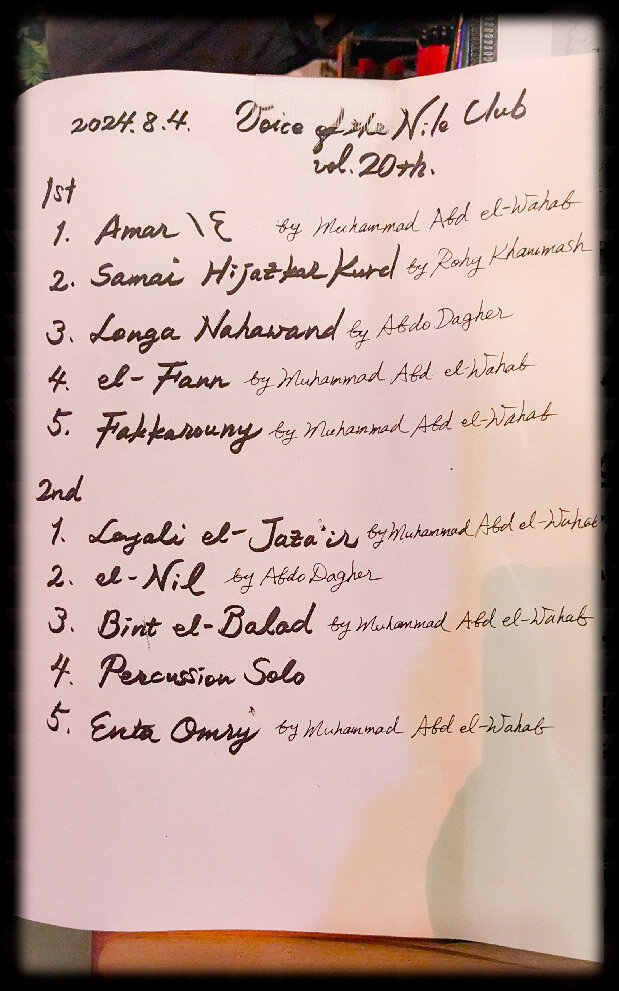 2024.8.4. Voice of the Nile Club
vol. 20th.
1st
1. Amar \٤ by Muhammad Abd el-Wahab
2. Samai Hijazkar Kurd by Rohy Khammash
3. Longa Nahawand by Abdo Dagher
4. el-Fann by Muhammad Abd el-Wahab
5. Fakkarouny by Muhammad Abd el-Wahab
2nd
1. Layali el-Jaza'ir by Muhammad Abd el-Wahab
2. el-Nil by Abdo Dagher
3. Bint el-Balad by Muhammad Abd el-Wahab
4. Percussion Solo
5. Enta Omry by Muhammad Abd el-Wahab